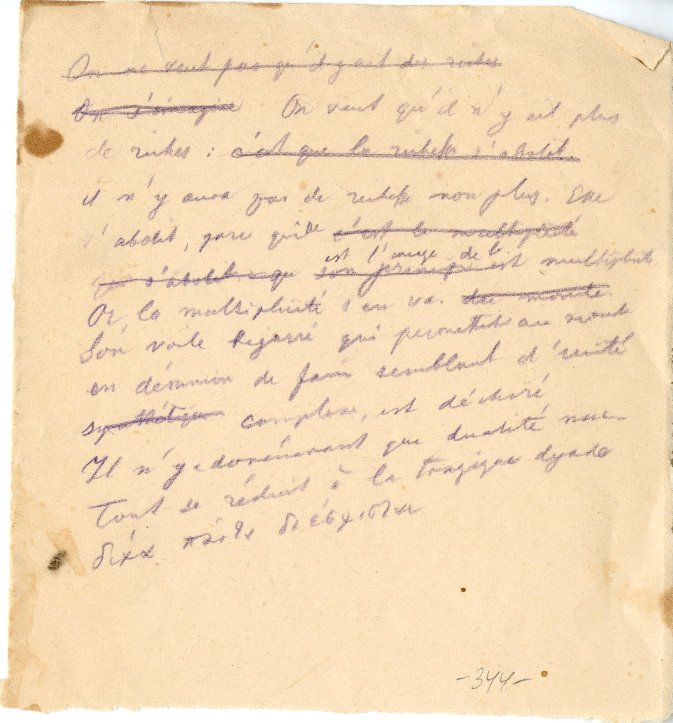 On ne veut pas qu'il y ait des riches
On s'imagine On veut qu'il n'y ait plus
de riches : c'est que la richesse s'abolit.
il n'y aura pas de richesse non plus. Elle
s'abolit, parce qu'elle c'est la multiplicité
qui s'abolit. que son principe est l'image de la multiplicité
Or la multiplicité s'en va. du monde.
Son voile bigarré qui permettait au monde
en désunion de faire semblant d'unité
complexe, est déchiré,
Il n'y a dorénavant que dualité nue
Tout se réduit à la tragique dyade
δίχα πάντα
-344-